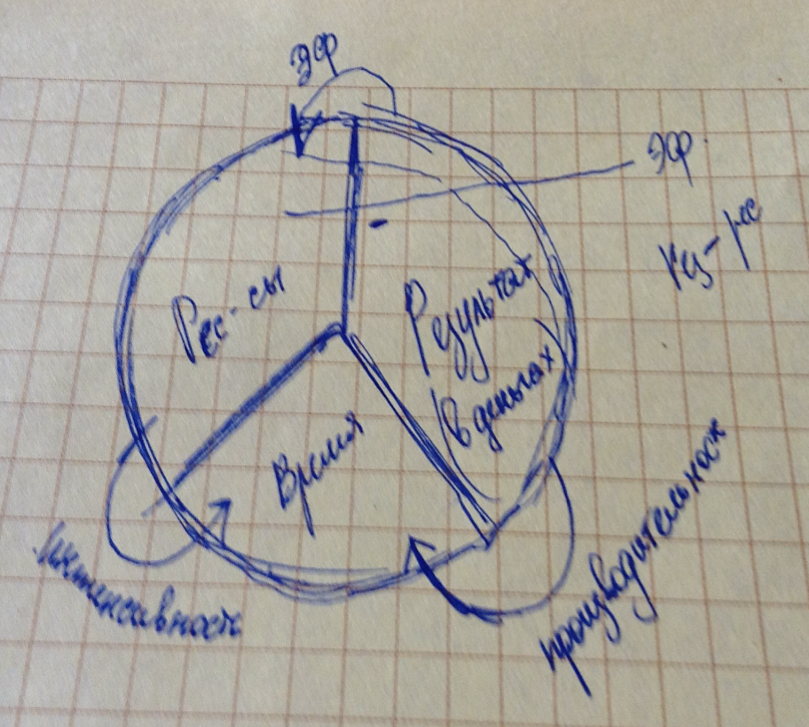 эф
эф.
Рес-сы
Результат
(в деньгах
Время
интенсивность
производительност